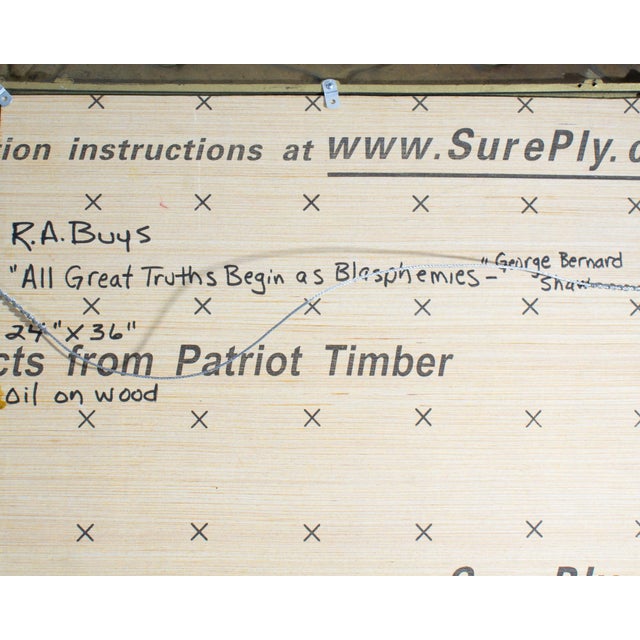 tion instructions at www.SurePly.c
R.A. Buys
"All Great Truths Begin as Blasphemies" - George Bernard
Shaw
24" X 36"
cts from Patriot Timber
oil on wood